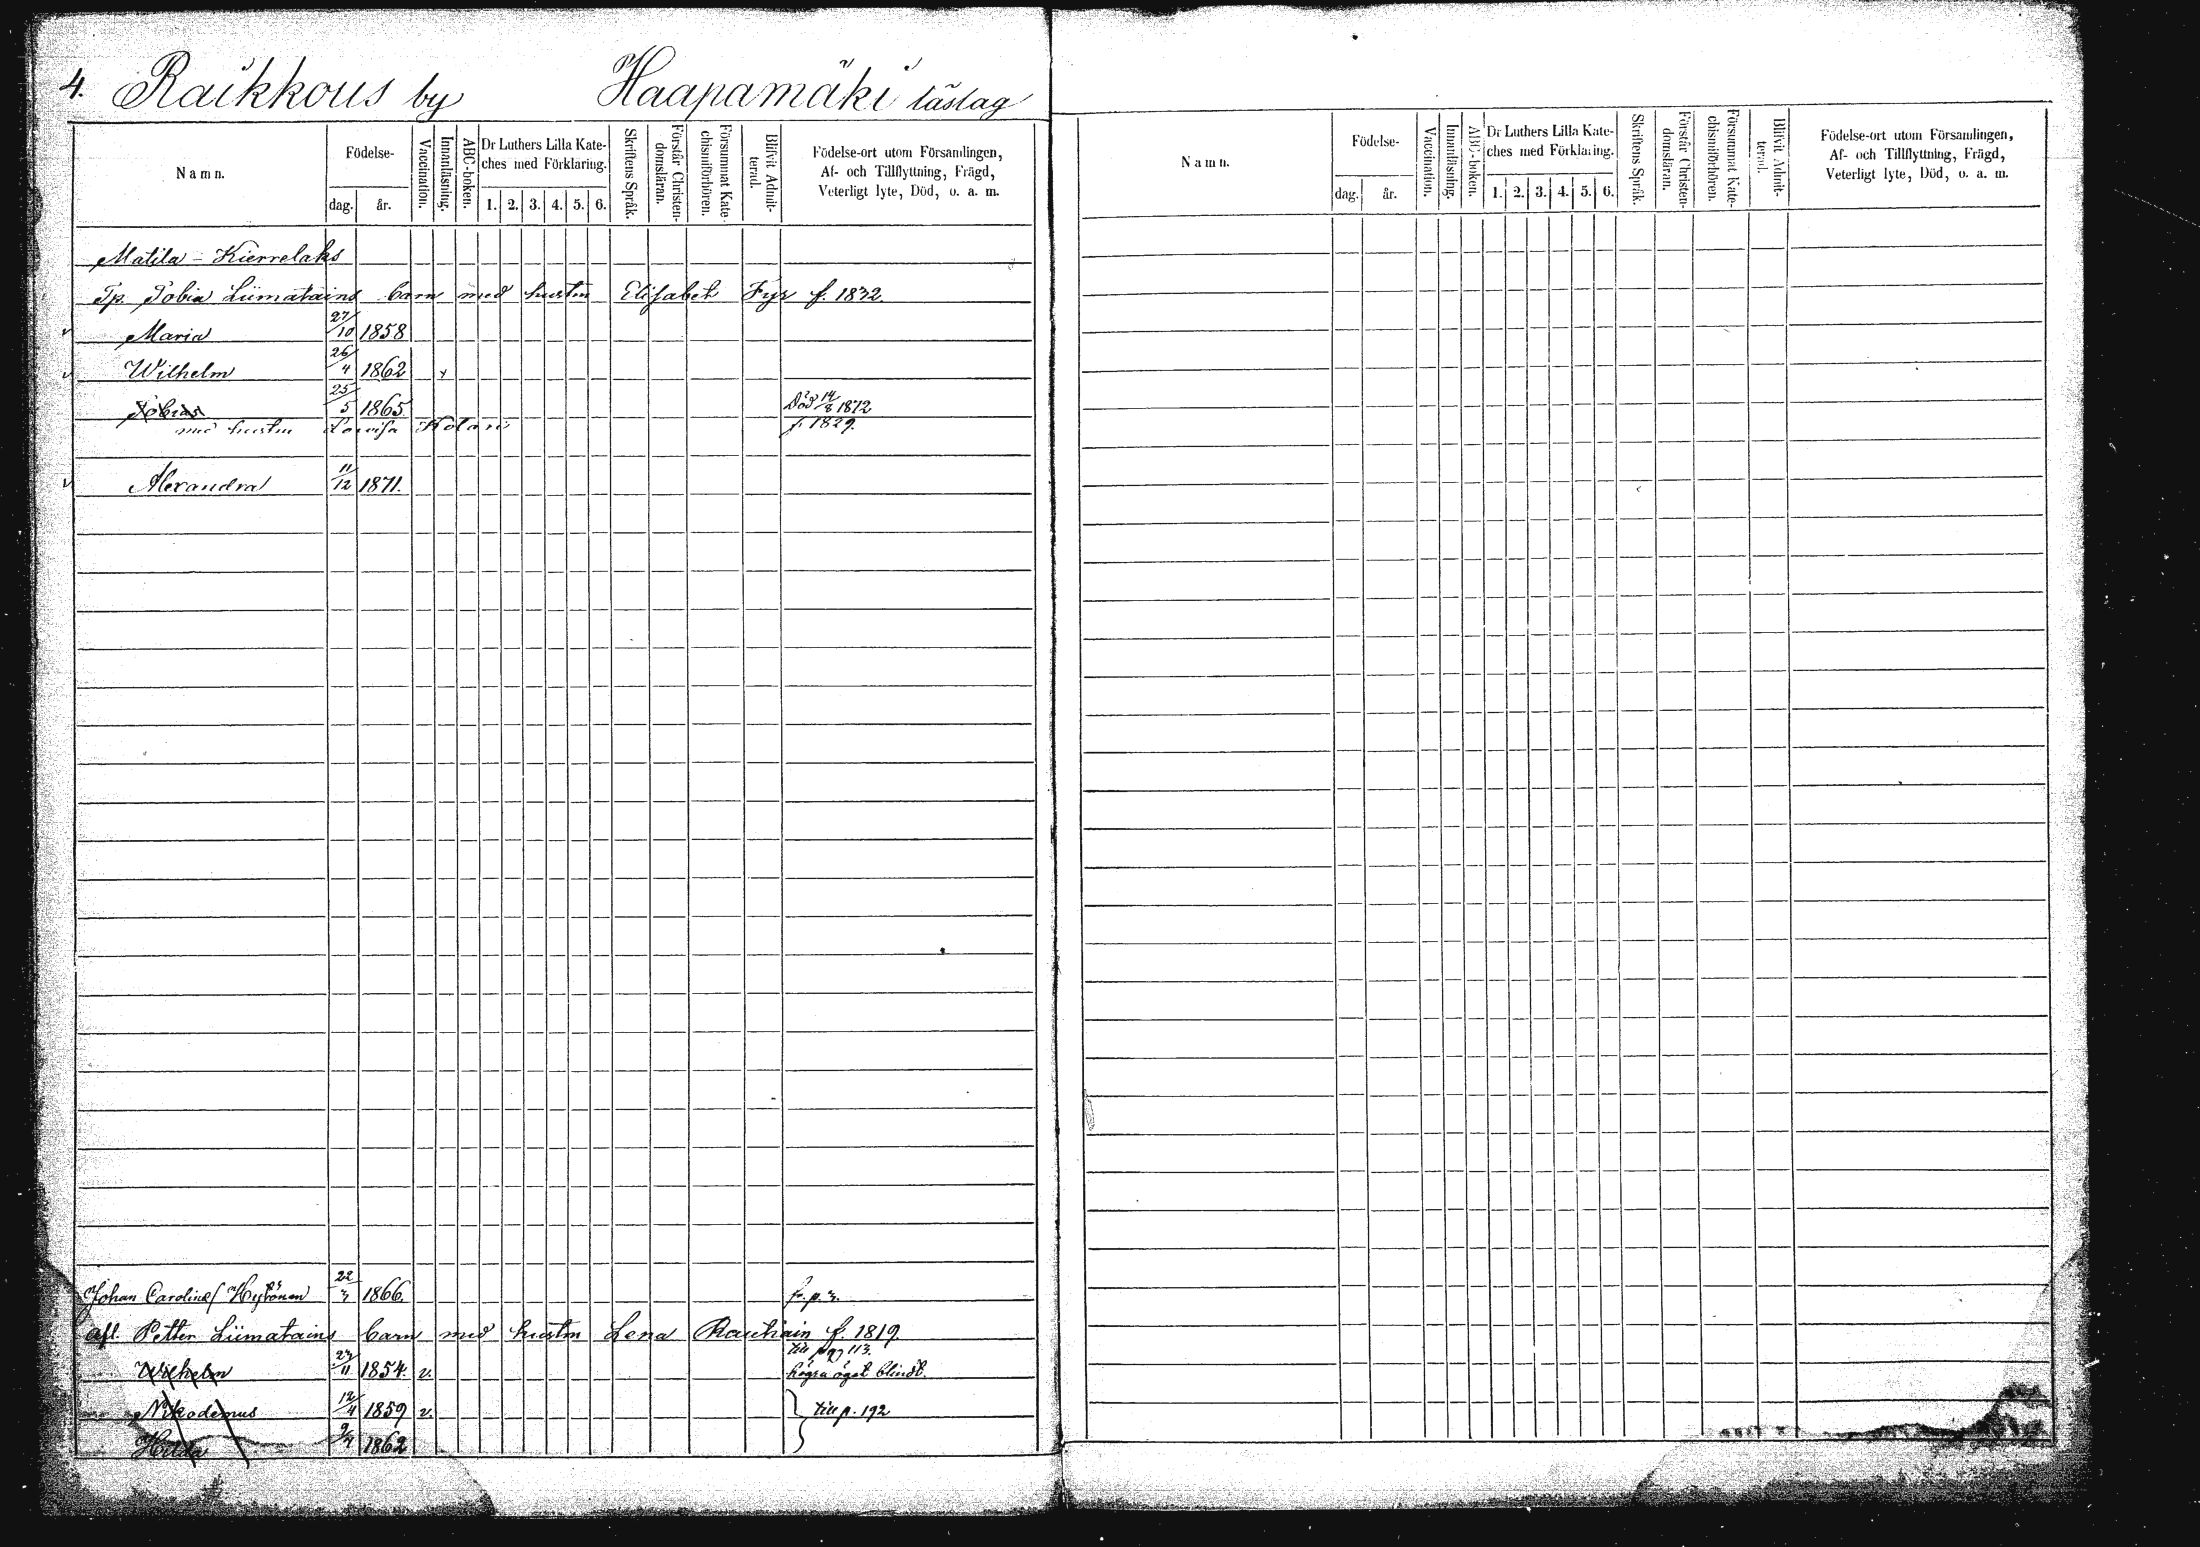 4. Raikkous by Haapamäki läslag
Namn.
Födelse-
dag. år.
Vaccination.
Innanläsning.
ABC-boken.
Dr Luthers Lilla Kate-
ches med Förklaring.
1. 2. 3. 4. 5. 6.
Skriftens Språk.
Förstår Christen-
domsläran.
Försummat Kate-
chismiförhören.
Blifvit Admit-
terad.
Födelse-ort utom Församlingen,
Af- och Tillflyttning, Frägd,
Veterligt lyte, Död, o. a. m.
Matila - Kierrelaks
Tp. Tobia Liimatains barn med hustru Elisabet Fyr f. 1832.
Maria 27/10 1858
Wilhelm 26/4 1862 x
Tobias 25/5 1865 Död 14/8 1872
med hustru Lovisa Kolari f. 1829.
Alexandra 11/12 1871.
Johan Carolines Hytönen 22/3 1866. fr. p. 3.
afl. Petter Liimatains barn med hustru Lena Rautiain f. 1819.
till pag 113.
Wilhelm 23/11 1854. v. högra ögat blindt.
Nikodemus 12/4 1859 v. till p. 192
Hilda 9/4 1862
Namn.
Födelse-
dag. år.
Vaccination.
Innanläsning.
ABC-boken.
Dr Luthers Lilla Kate-
ches med Förklaring.
1. 2. 3. 4. 5. 6.
Skriftens Språk.
Förstår Christen-
domsläran.
Försummat Kate-
chismiförhören.
Blifvit Admit-
terad.
Födelse-ort utom Församlingen,
Af- och Tillflyttning, Frägd,
Veterligt lyte, Död, o. a. m.